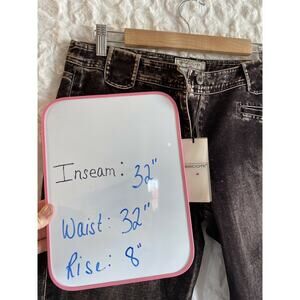 Inseam: 32"
Waist: 32"
Rise: 8"